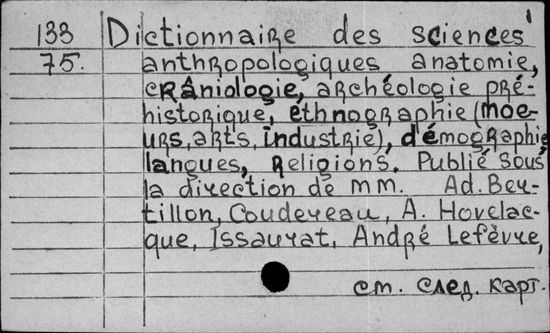 133 Dictionnaire des sciences
75. anthropologiques anatomie,
crâniologie, archéologie pré-
historique, éthnographie (moe-
urs, arts, industrie), démographie
langues, religions. Publié sous
la direction de mm. Ad. Ber-
tillon, Coudereau, A. Hovelac-
que, Issaurat, André Lefèvre,
см. след. карт.